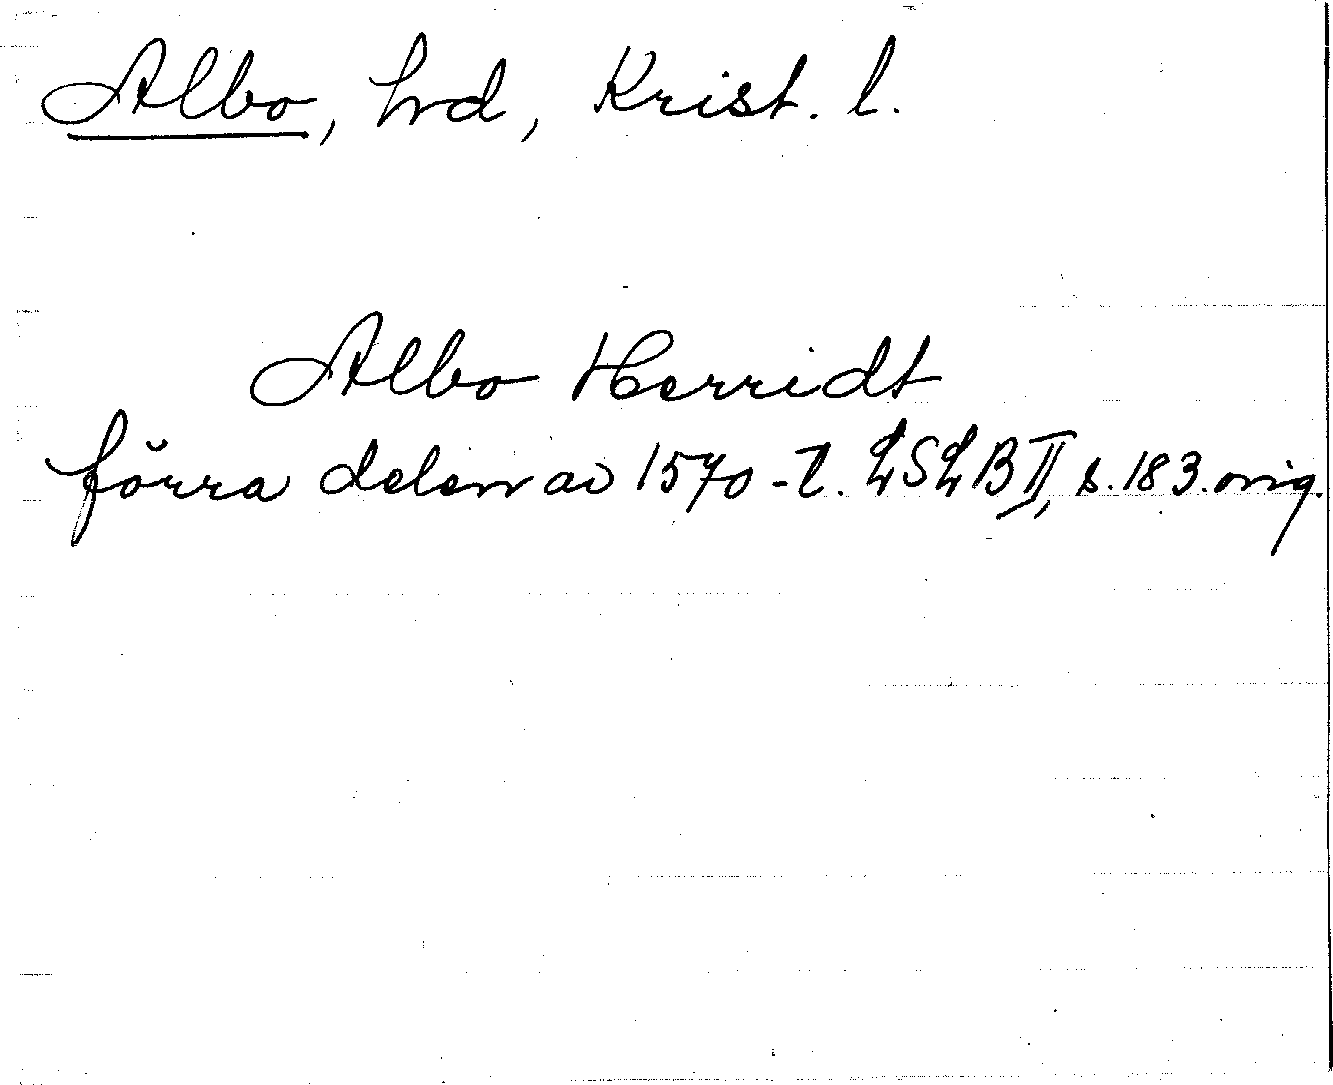 Albo, hrd, Krist. l.
Albo Herridt
förra delen av 1570-t. LSLB II, s. 183. orig.